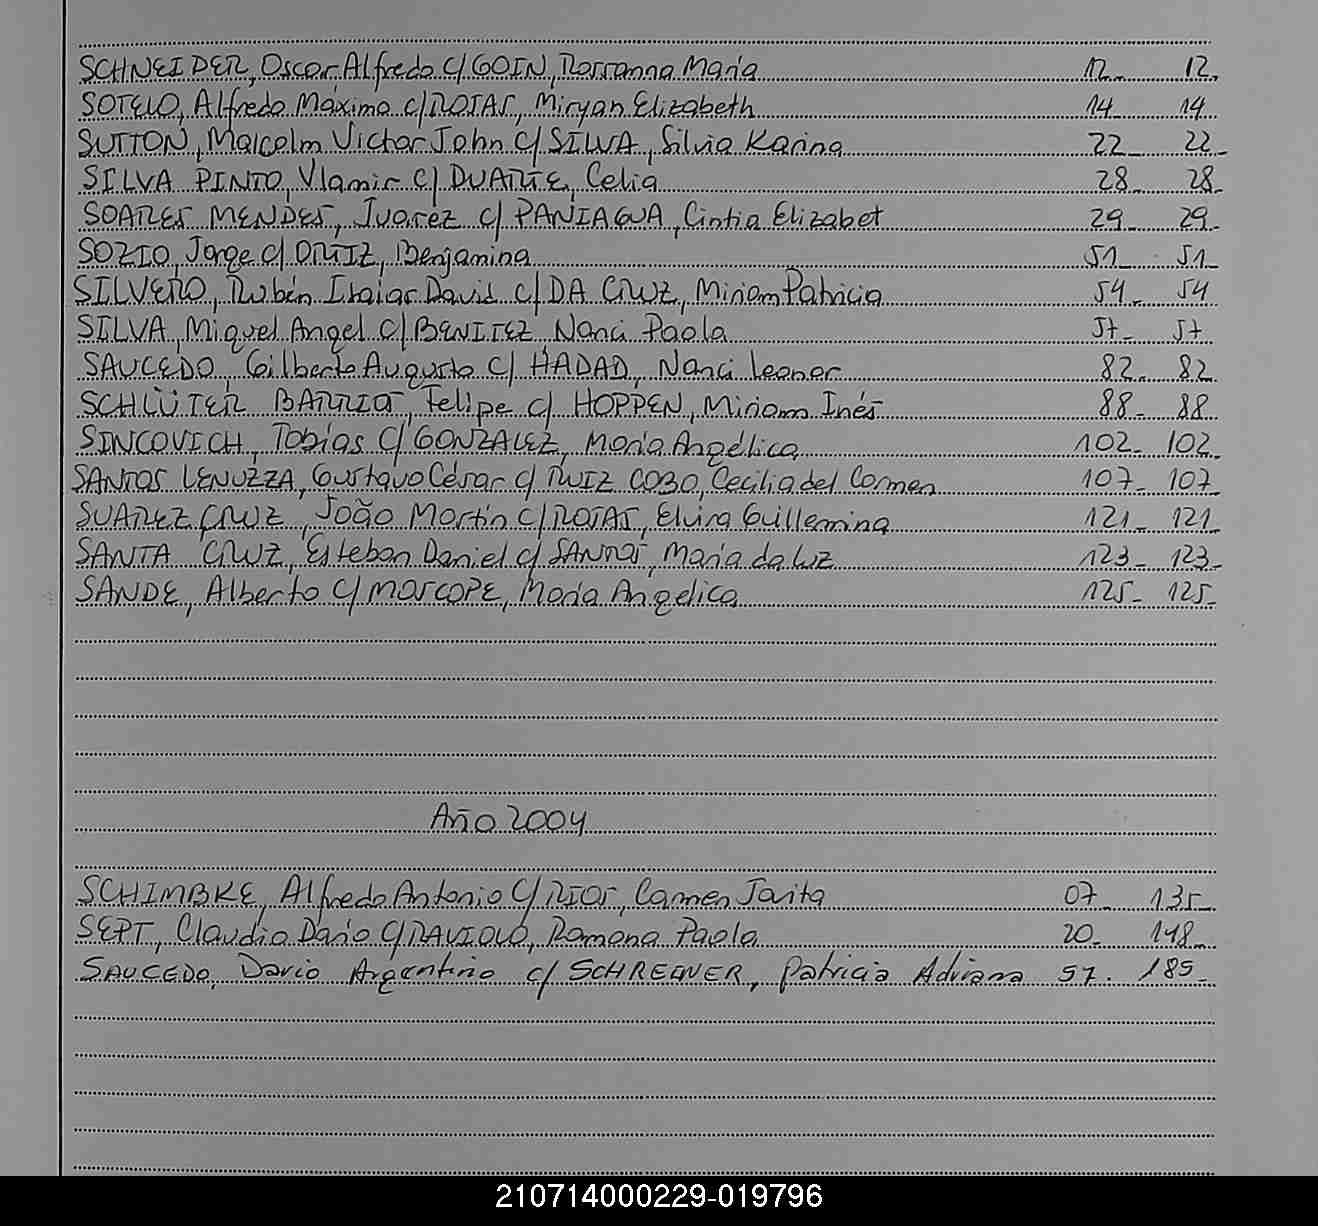 SCHNEIDER, Oscar Alfredo c/ GOIN, Rossanna María 12- 12.
SOTELO, Alfredo Máximo c/ ROJAS, Miryan Elizabeth 14 14
SUTTON, Malcolm Victor John c/ SILVA, Silvia Karina 22- 22-
SILVA PINTO, Vlamir c/ DUARTE, Celia 28- 28-
SOARES MENDES, Juarez c/ PANIAGUA, Cintia Elizabet 29- 29-
SOZIO, Jorge c/ ORTIZ, Benjamina 51- 51-
SILVERO, Rubén Isaias David c/ DA CRUZ, Miriam Patricia 54- 54
SILVA, Miguel Angel c/ BENITEZ, Nanci Paola 57- 57-
SAUCEDO, Gilberto Augusto c/ HADAD, Nanci Leonor 82- 82
SCHLÜTER BARRIOS, Felipe c/ HOPPEN, Miriam Inés 88- 88
SINCOVICH, Tobías c/ GONZALEZ, María Angélica 102- 102
SANTOS LENUZZA, Gustavo César c/ RUIZ COBO, Cecilia del Carmen 107- 107-
SUAREZ CRUZ, João Martín c/ ROJAS, Elvira Guillermina 121- 121-
SANTA CRUZ, Esteban Daniel c/ María da Luz 123- 123-
SANDE, Alberto c/ MARCOPE, María Angelica 125- 125-
Año 2004
SCHIMBKE, Alfredo Antonio c/ RIOS, Carmen 07- 135-
SEPT, Claudio Darío c/ RAVIOLO, Ramona Paola 20- 148-
SAUCEDO, Dario Argentino c/ SCHREINER, Patricia Adriana 57- 185-
210714000229-019796